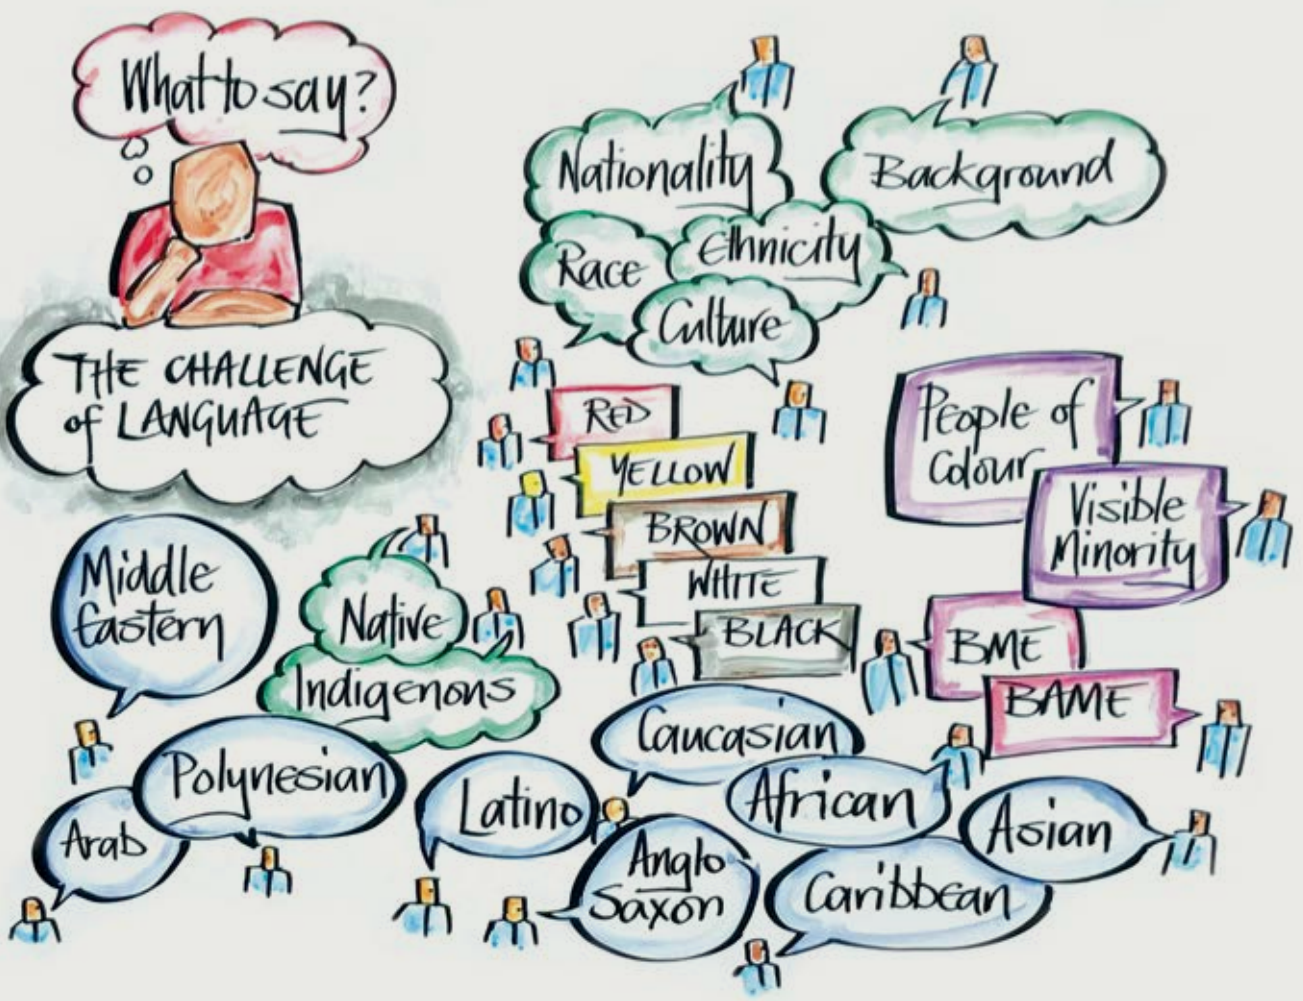 What to say?
THE CHALLENGE
of LANGUAGE
Nationality
Background
Race
Ethnicity
Culture
RED
YELLOW
BROWN
WHITE
BLACK
People of
Colour
Visible
Minority
BME
BAME
Middle
Eastern
Native
Indigenons
Polynesian
Arab
Latino
Caucasian
African
Asian
Anglo
Saxon
Caribbean